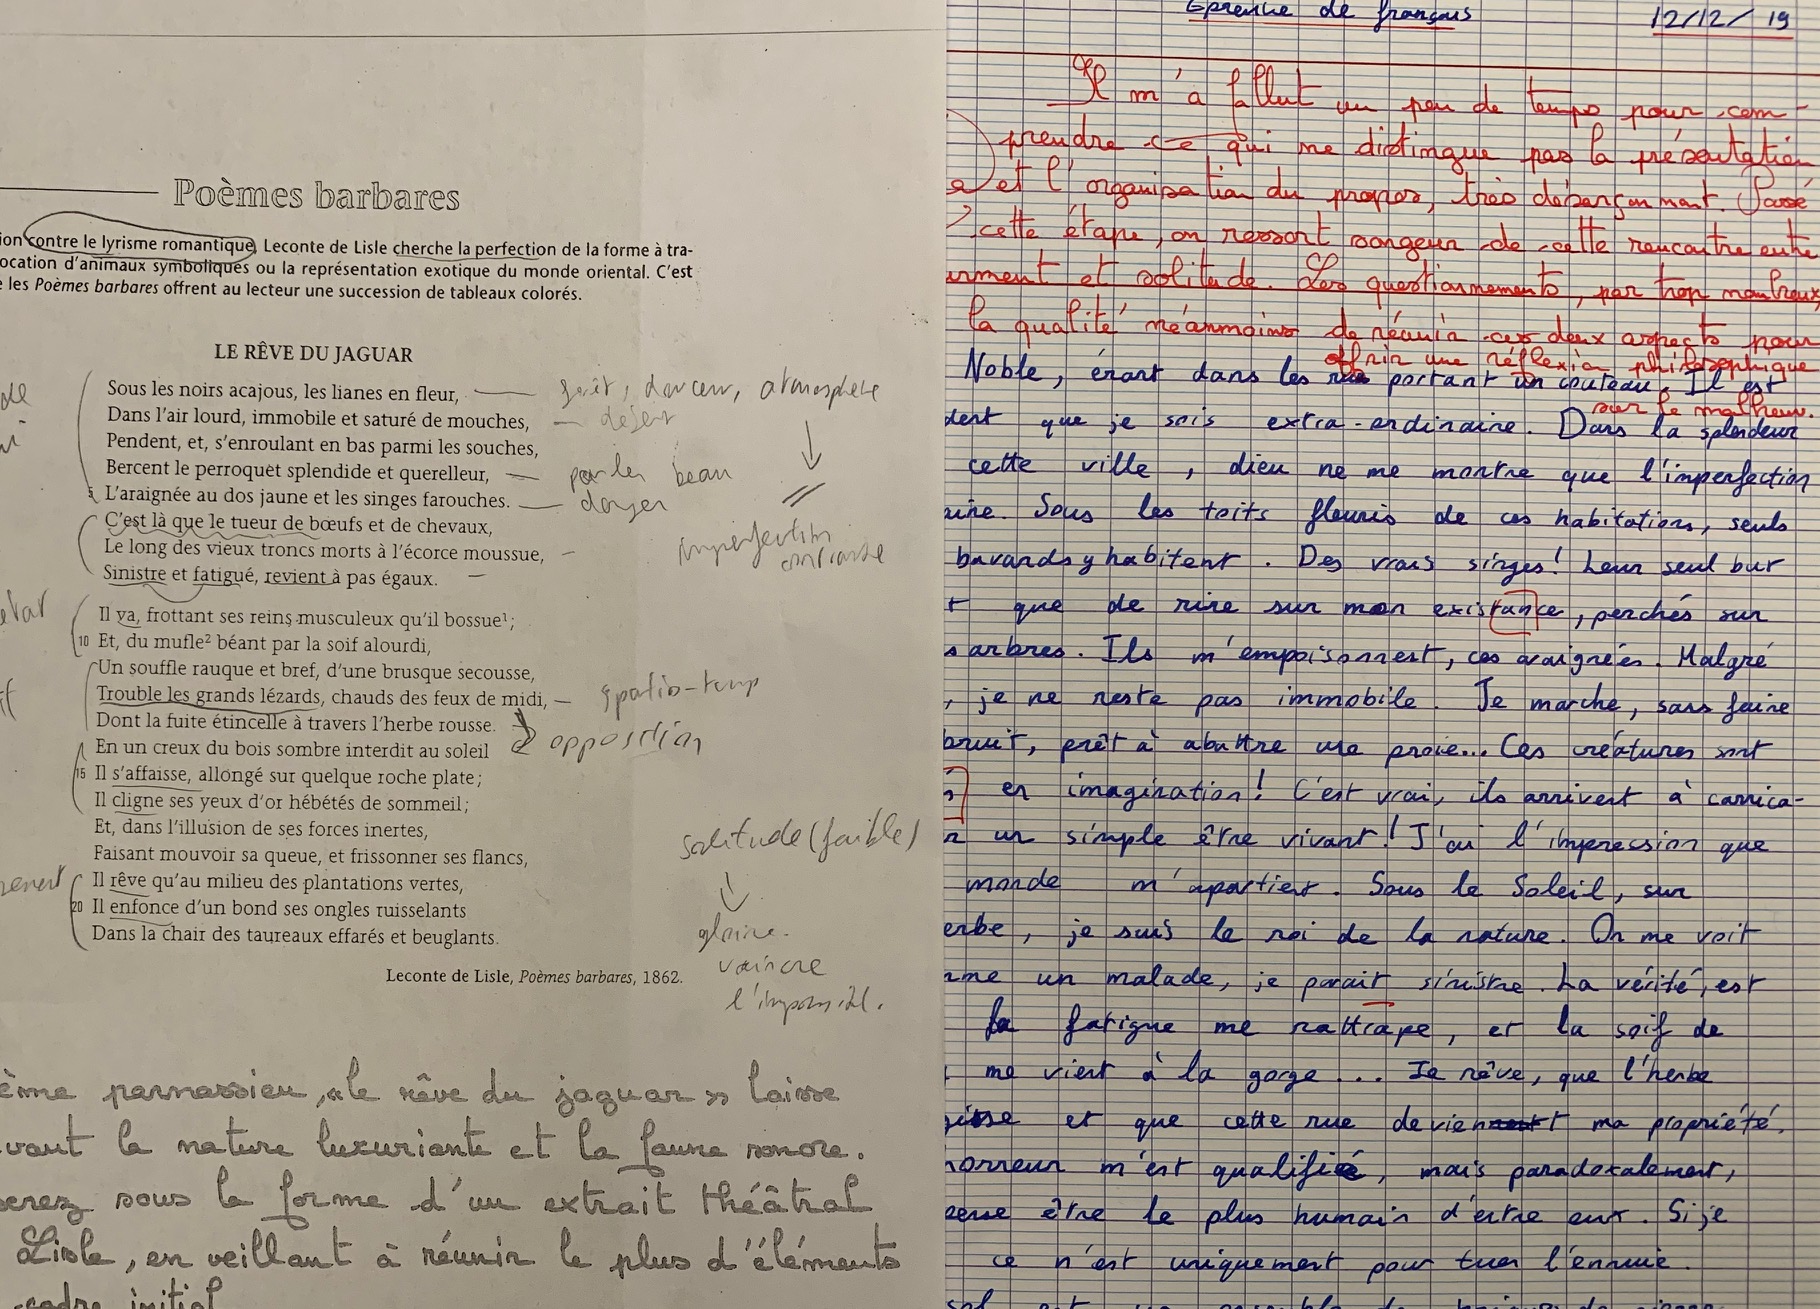 Poèmes barbares
ion contre le lyrisme romantique, Leconte de Lisle cherche la perfection de la forme à tra-
ocation d'animaux symboliques ou la représentation exotique du monde oriental. C'est
e les Poèmes barbares offrent au lecteur une succession de tableaux colorés.
LE RÊVE DU JAGUAR
Sous les noirs acajous, les lianes en fleur,
forêt, douceur, atmosphère
Dans l'air lourd, immobile et saturé de mouches,
désert
Pendent, et, s'enroulant en bas parmi les souches,
Bercent le perroquet splendide et querelleur,
parler beau
5 L'araignée au dos jaune et les singes farouches.
danger
C'est là que le tueur de bœufs et de chevaux,
Le long des vieux troncs morts à l'écorce moussue,
imperfection
Sinistre et fatigué, revient à pas égaux.
Il va, frottant ses reins musculeux qu'il bossue¹;
10 Et, du mufle² béant par la soif alourdi,
Un souffle rauque et bref, d'une brusque secousse,
Trouble les grands lézards, chauds des feux de midi,
spatio-temp
Dont la fuite étincelle à travers l'herbe rousse.
opposition
En un creux du bois sombre interdit au soleil
15 Il s'affaisse, allongé sur quelque roche plate;
Il cligne ses yeux d'or hébétés de sommeil;
Et, dans l'illusion de ses forces inertes,
solitude (faible)
Faisant mouvoir sa queue, et frissonner ses flancs,
Il rêve qu'au milieu des plantations vertes,
20 Il enfonce d'un bond ses ongles ruisselants
gloire.
Dans la chair des taureaux effarés et beuglants.
vaincre
Leconte de Lisle, Poèmes barbares, 1862.
l'impossible.
ème parnassien, « le rêve du jaguar » laisse
vant la nature luxuriante et la faune sonore.
erez sous la forme d'un extrait théâtral
Lisle, en veillant à réunir le plus d'éléments
cadre initial
Epreuve de français
12/12/19
Il m'a fallut un peu de temps pour com-
prendre ce qui me distingue pas la présentation
et l'organisation du propos, très débarçonnant. Passé
cette étape, on ressort songeur de cette rencontre entre
urment et solitude. Les questionnements, par trop nombreux,
la qualité néanmoins de réunir ces deux aspects pour
offrir une réflexion philosophique
sur le malheur.
Noble, érant dans les rue portant un couteau. Il est
dent que je sois extra-ordinaire. Dans la splendeur
cette ville, dieu ne me montre que l'imperfection
aine. Sous les toits fleuris de ces habitations, seuls
bavards y habitent. Des vrais singes! Leur seul but
t que de rire sur mon existance, perchés sur
s arbres. Ils m'empoisonnent, ces araignées. Malgré
, je ne reste pas immobile. Je marche, sans faire
bruit, prêt à abattre une proie... Ces créatures sont
en imagination! C'est vrai, ils arrivent à carrica-
r un simple être vivant! J'ai l'impression que
monde m'apartient. Sous le Soleil, sur
erbe, je suis le roi de la nature. On me voit
me un malade, je parait sinistre. La vérité, est
la fatigue me rattrape, et la soif de
me vient à la gorge... Je rêve, que l'herbe
et que cette rue devient ma propriété.
horreur m'est qualifié, mais paradoxalement,
pense être le plus humain d'entre eux. Si je
ce n'est uniquement pour tuer l'ennuie.